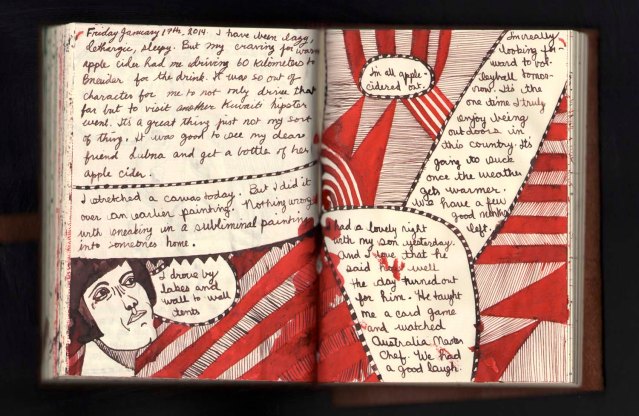 Friday January 17th, 2014. I have been lazy,
lethargic, sleepy. But my craving for warm
apple cider had me driving 60 kilometers to
Bneider for the drink. It was so out of
character for me to not only drive that
far but to visit another Kuwaiti hipster
event. It's a great thing just not my sort
of thing. It was good to see my dear
friend Lubna and get a bottle of her
apple cider.
I stretched a canvas today. But I did it
over an earlier painting. Nothing wrong
with sneaking in a subliminal painting
into someones home.
I drove by
lakes and
wall to wall
tents
I'm all apple-
cidered out.
I'm really
looking for-
ward to vol-
leyball tomor-
row. It's the
one time I truly
enjoy being
outdoors in
this country. It's
going to suck
once the weather
gets warmer.
We have a few
good months
left.
I had a lovely night
with my son yesterday.
And I love that he
said how well
the day turned out
for him. He taught
me a card game
and watched
Australia Master
Chef. We had
a good laugh.